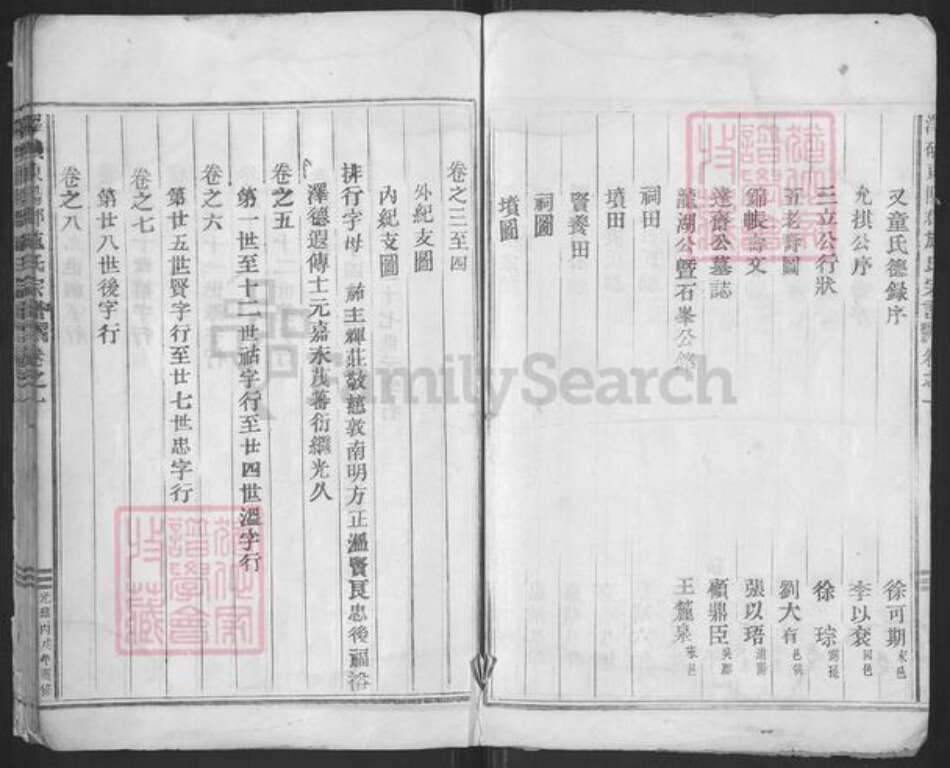 又童氏德錄序 徐可期
允祺公序 李以袞 同邑
三立公行狀 徐琮
五老詩圖 劉大有
錦帳壽文 張以珸
蓬齋公墓誌 顧鼎臣
龍湖公暨石峯公 王麓泉
祠田
墳田
賢養田
祠圖
墳圖
卷之三至四
外紀支圖
內紀支圖
排行字母 祐主輝莊敬德敦南明方正溫賢良忠後福裕
澤德遐傳士元嘉永茂蕃衍繼光久
卷之五
第一世至十二世祐字行至廿四世溫字行
卷之六
第廿五世賢字行至廿七世忠字行
卷之七
第廿八世後字行
卷之八
FamilySearch